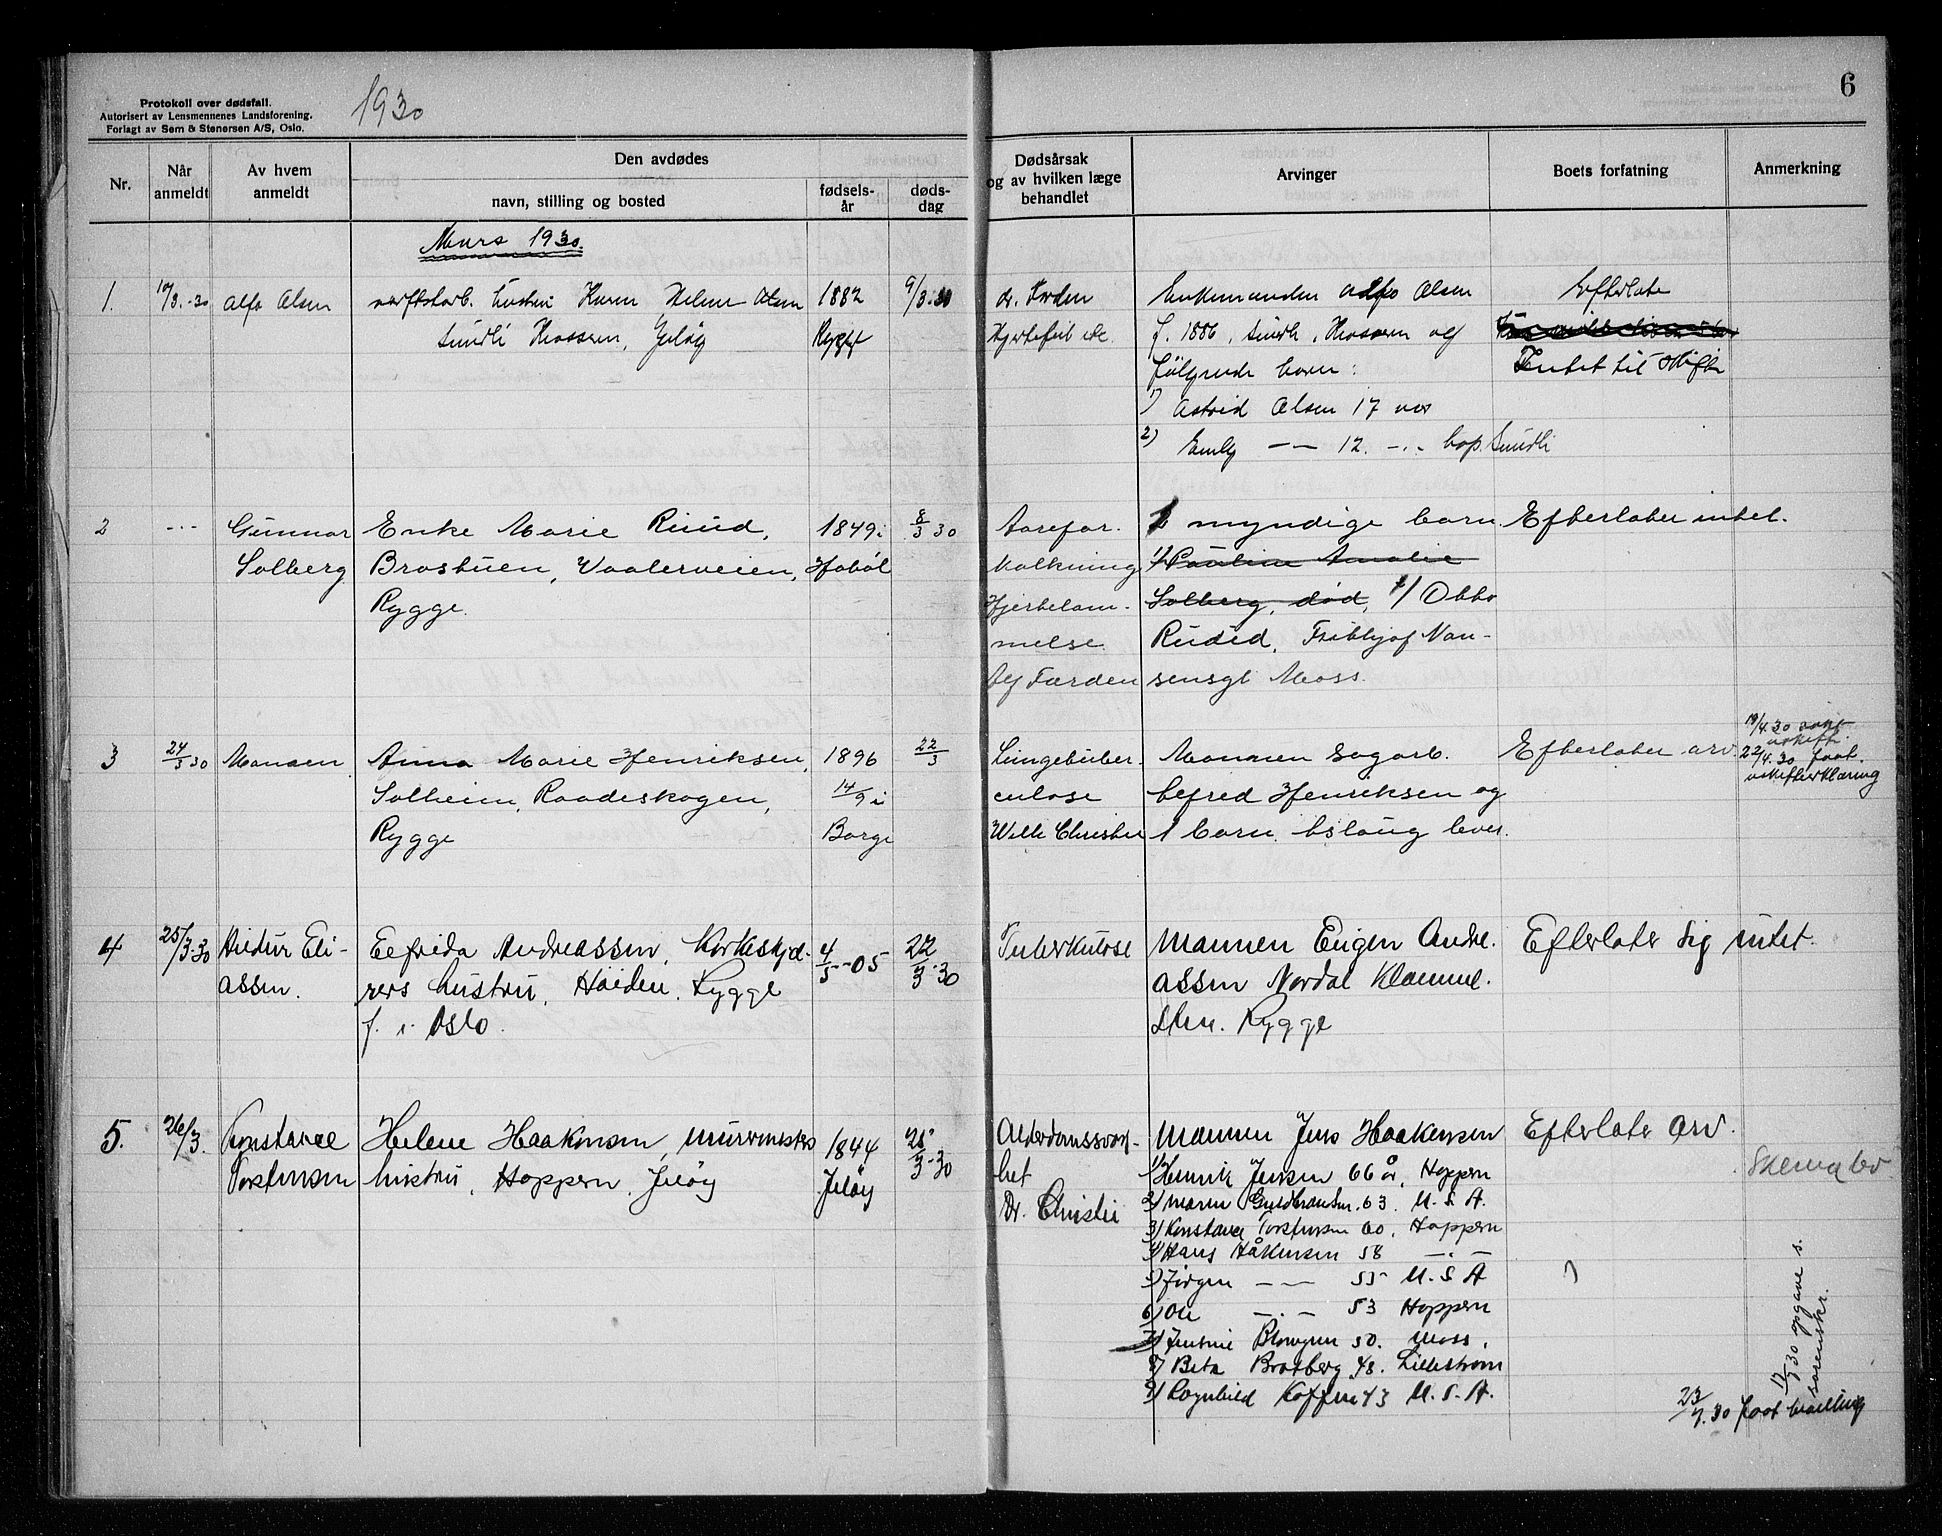 Protokoll over dødsfall.
Autorisert av Lensmennenes Landsforening.
Forlagt av Sem & Stenersen A/S, Oslo.
1930
6
Nr.
Når anmeldt
Av hvem anmeldt
Den avdødes
navn, stilling og bosted
fødsels-år
døds-dag
Dødsårsak og av hvilken læge behandlet
Arvinger
Boets forfatning
Anmerkning
Mars 1930.
1.
10/3.-30
Alfo Olsen
verftsarb. hustru Karen Helene Olsen
Sundli Krosseren, Jeløy
1882
Rygge
9/3.30
dr. Færden
Hjertefeil etc.
Enkemanden Alfo Olsen
f. 1886, Sundli, Krosseren og
følgende barn:
1) Astrid Olsen 17 aar
2) Emly — — 12. -.- bop. Sundli
Efterlate
Intet til skifte
2
- - -
Gunnar
Solberg
Enke Marie Ruud,
Brostuen, Vaalerveien,
Rygge.
1849 i
Hobøl
8/3 30
Aarefor-
kalkning
Hjertelam-
melse.
Alf Færden
myndige barn
1/ Pauline Amalie
Solberg, død, 1/ Otto
Ruud, Fridtjof Nan-
sensgt Moss.
Efterlater intet.
3
24/3 30
Mansen
Anna Marie Henriksen,
Solheim, Raadeskogen,
Rygge
1896
14/9 i
Borge
22/3
Lungetuber-
culose
Wilh Christie
Mannen sagarb.
Henriksen og
1 barn. Aslaug lever.
Efterlater arv
19/4.30
22/4.30 faat
uskifteerklæring
4
25/3.30
Reidur Eli-
assen.
Elfrida Andreassen, Korkeskjæ-
rers hustru, Høiden, Rygge
f. i Oslo.
4/5-05
22/3.30
Tuberkulose
Mannen Eugen Andre-
assen Nordal Klamme-
sten. Rygge
Efterlater sig intet.
5.
26/3.
Konstanse
Torstensen
Helene Haakensen, murmesters
hustru, Hoppern, Jeløy
1844
Jeløy
25/3-30
Alderdomssvak-
het
Dr. Christie
Mannen Jens Haakensen
1) Henrik Jensen 66 år, Hoppern
2) Maren Guldbransen. 63. U. S. A.
3) Konstanse Torstensen 60, Hoppern
4) Hans Håkensen 58 — . —
5) Jørgen — — 55 U. S. A
6) Ole — . — 53 Hoppern
7) Jentine 50. Moss.
8) Beta Bratberg 48. Lillestrøm
9) Ragnhild 43 U. S. A.
Efterlater arv.
Skema lev
17/7 30 opgave s.
sorenskr.
23/7.30 faat